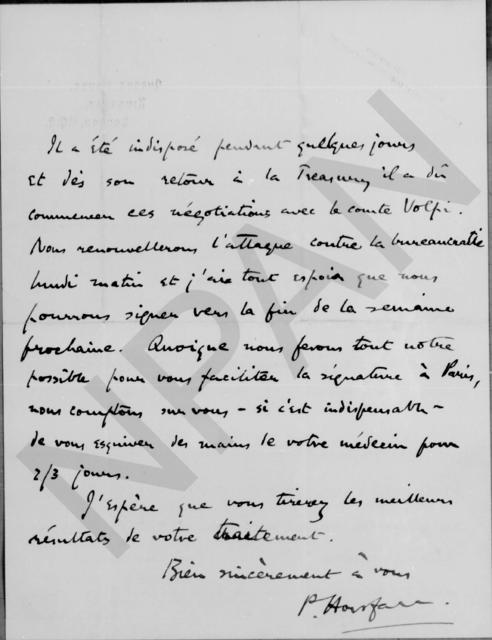 Il a été indisposé pendant quelques jours
et dès son retour à la Treasury il a dû
commencer ces négotiations avec le comte Volpi.
Nous renouvellerons l'attaque contre la bureaucratie
lundi matin et j'ai tout espoir que nous
pourrons signer vers la fin de la semaine
prochaine. Quoique nous ferons tout notre
possible pour vous faciliter la signature à Paris,
nous comptons sur vous – si c'est indispensable –
de vous esquiver des mains de votre médecin pour
2/3 jours.
J'espère que vous tirerez les meilleurs
résultats de votre traitement.
Bien sincèrement à vous
P.
NPAN